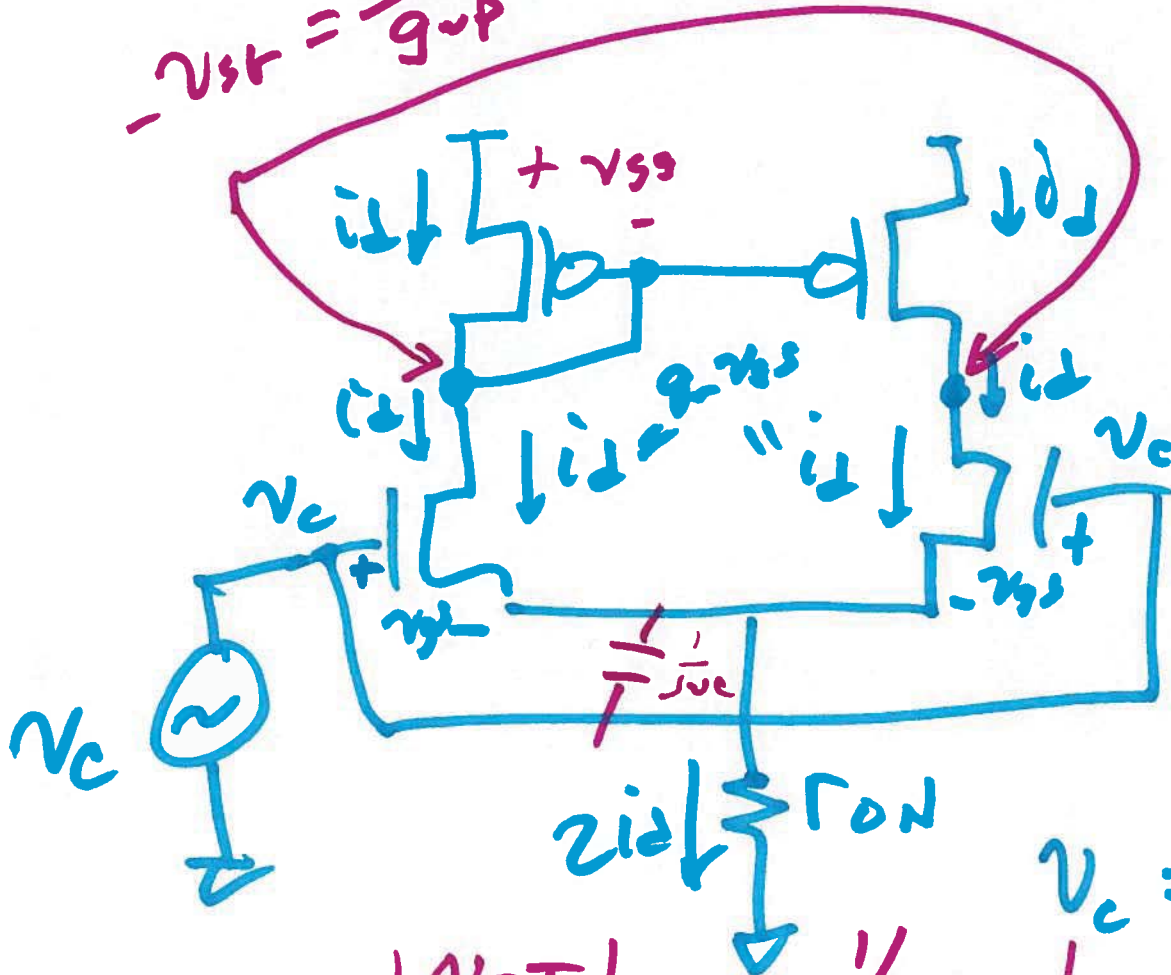 -vsg = gmp
+ vsg
-
id
id
id
id = gm vgs
" id
id
vc
vc
+
vgs-
+
- vgs
1/jωc
vc
2id
roN
vc =